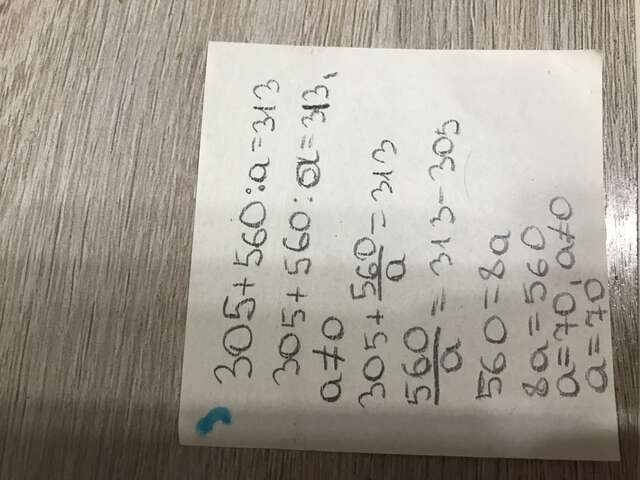 305+560:a=313
305+560:a=313,
a≠0
305+560/a=313
560/a=313-305
560=8a
8a=560
a=70, a≠0
a=70